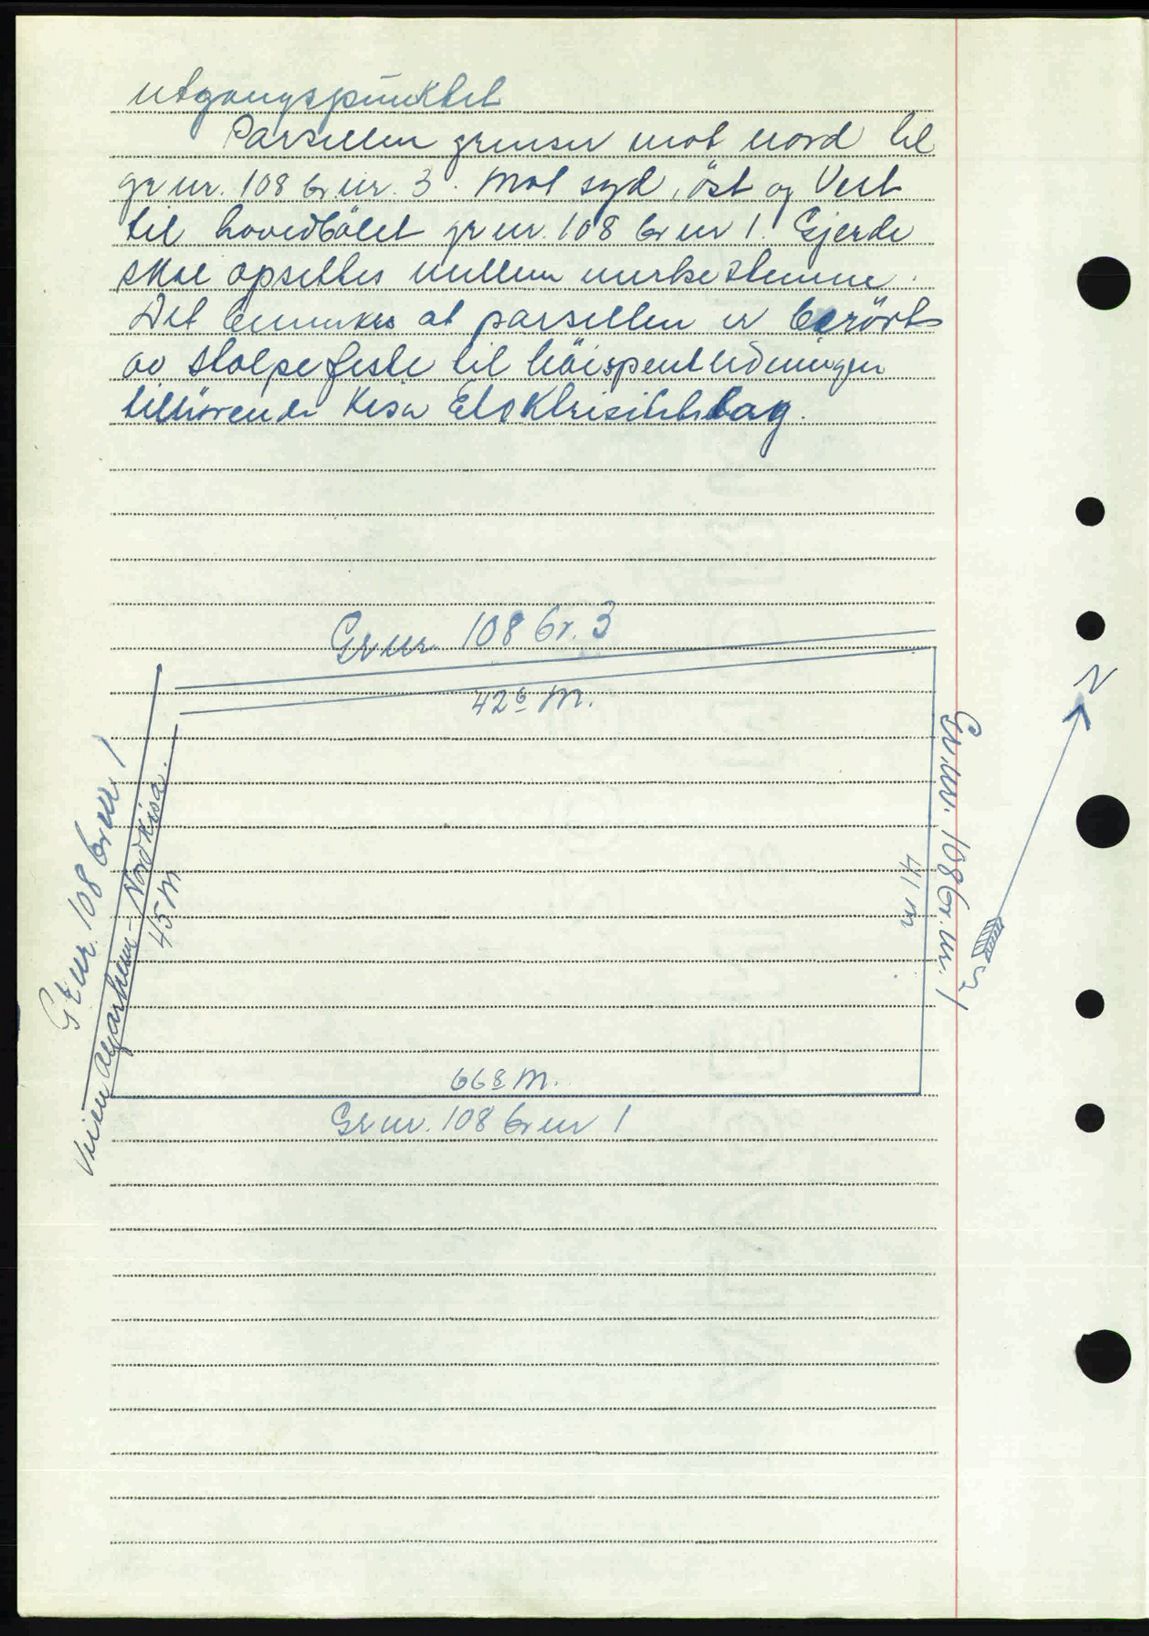 utgangspunktet
Parsellen grenser mot nord til
gr nr. 108 br. nr. 3. Mot syd, öst og Vest
til hovedbölet gr nr. 108 br nr 1. Gjerde
skal opsettes mellem merkestenene.
Det bemerkes at parsellen er berörts
av stolpefeste til höispentledningen
tilhörende Kisa Elektrisitetslag.
Gr nr. 108 br. 3
42⁵ M.
Gr. nr. 108 br. nr. 1
41 m
N
S
Gr nr. 108 br nr 1
Veien Algarheim - Nordkisa.
45 M
66⁸ M.
Gr nr. 108 br nr 1